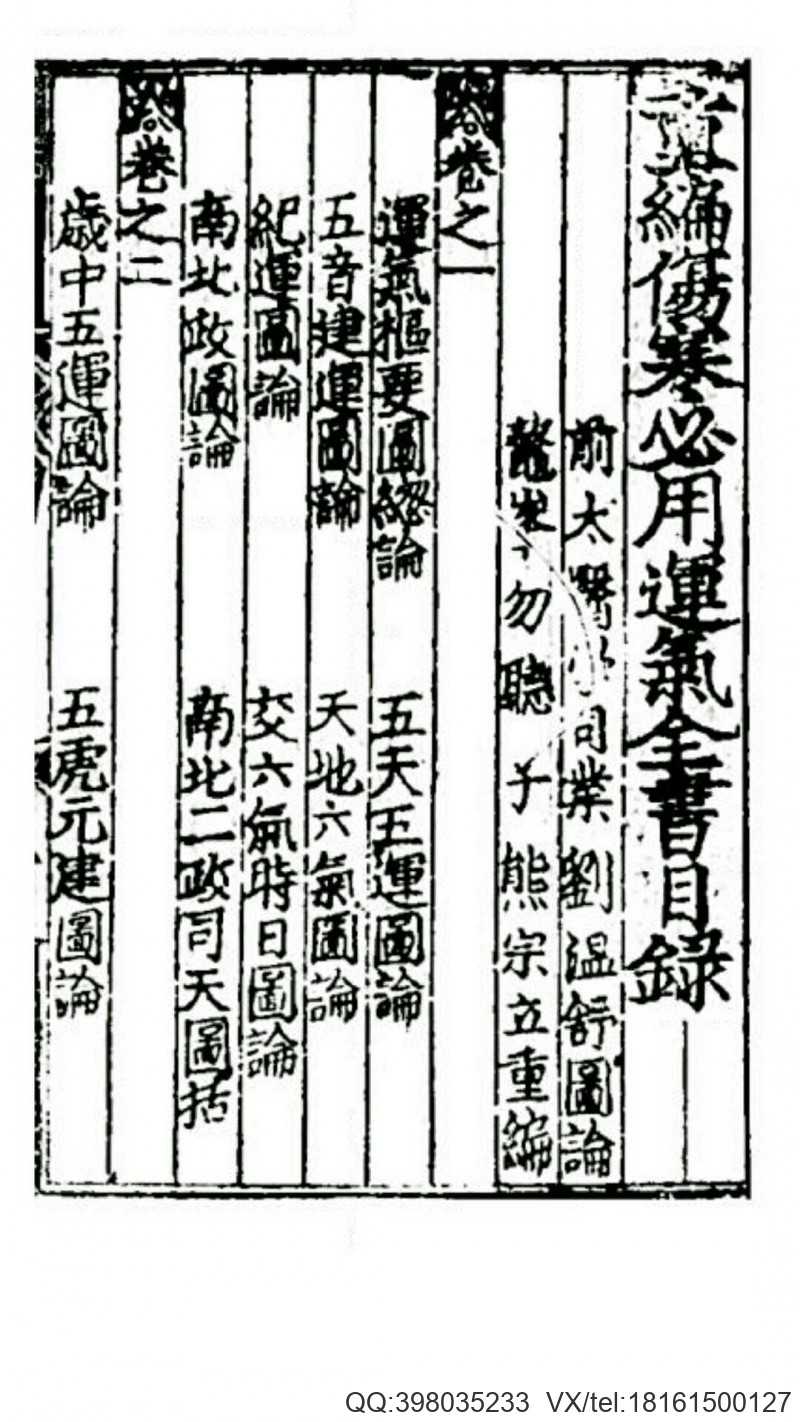 編傷寒必用運氣全書目錄
前太醫 司業劉温舒圖論
鼇 勿聽子熊宗立重編
卷之一
運氣樞要圖緫論 五天五運圖論
五音建運圖論 天地六氣圖論
紀運圖論 交六氣時日圖論
南北政圖論 南北二政司天圖括
卷之二
歳中五運圖論 五虎元建圖論
QQ:398035233 VX/tel:18161500127